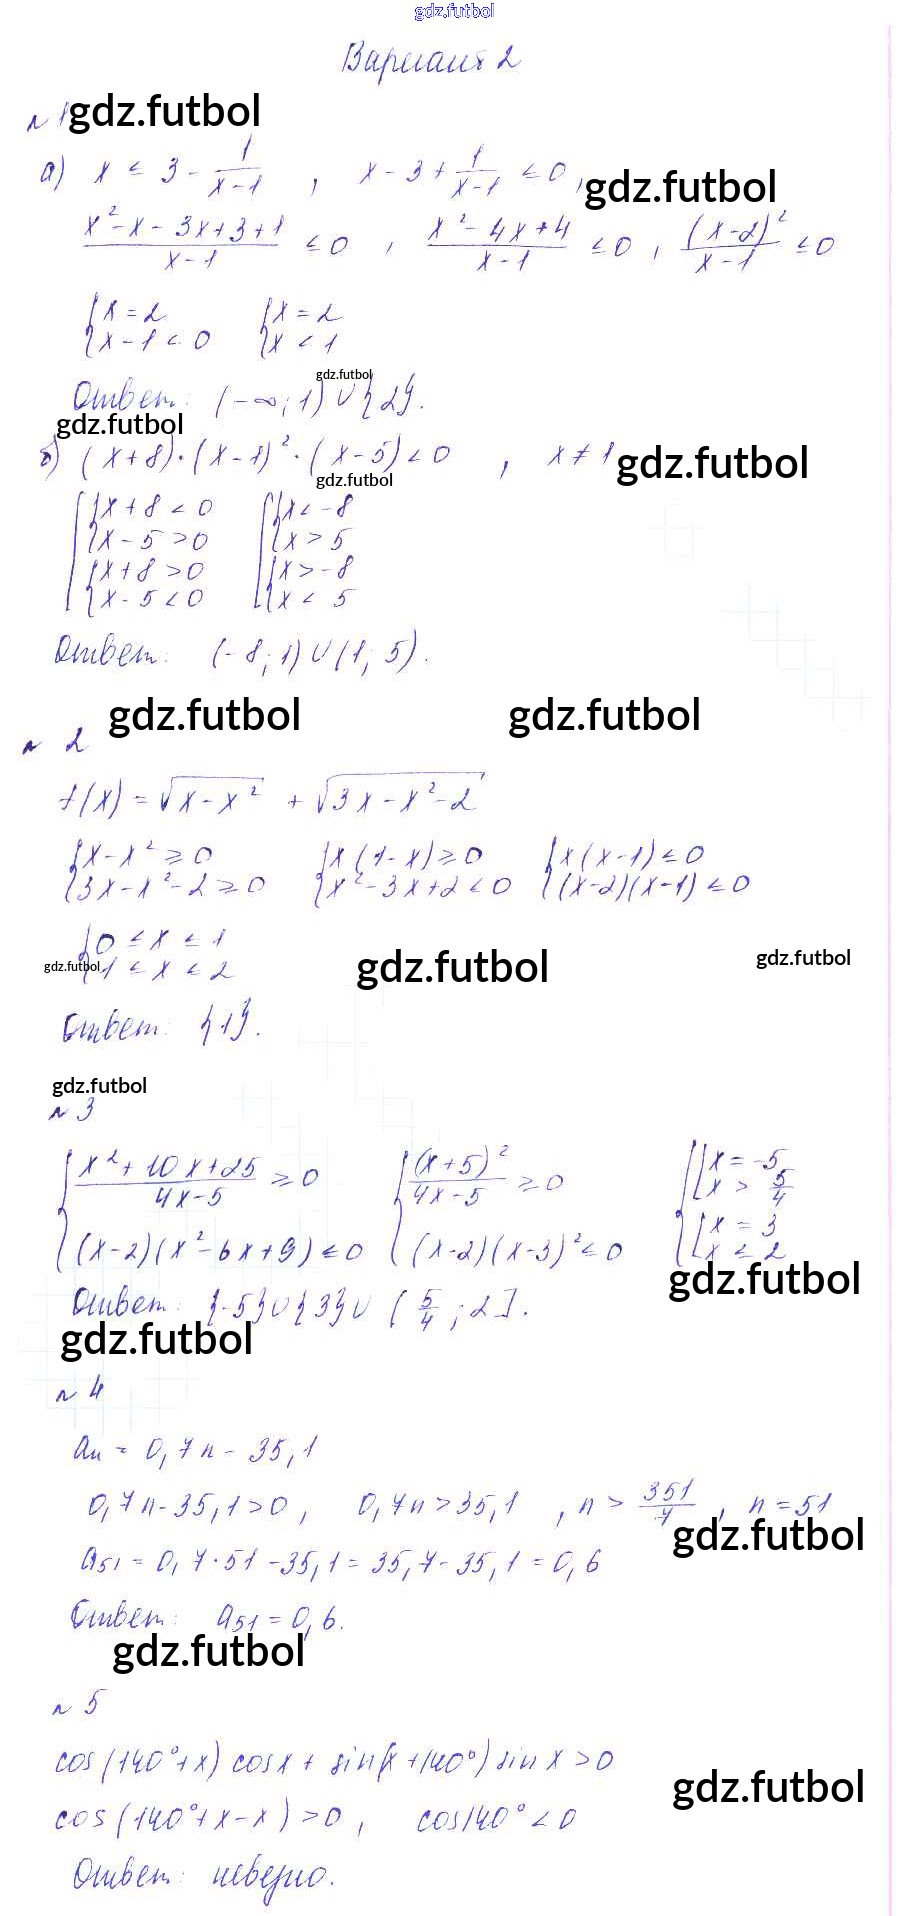 gdz.futbol
Вариант 2
№ 1 gdz.futbol
а) x ≤ 3 - 1/(x-1) , x - 3 + 1/(x-1) ≤ 0, gdz.futbol
(x² - x - 3x + 3 + 1)/(x-1) ≤ 0 , (x² - 4x + 4)/(x-1) ≤ 0 , (x-2)²/(x-1) ≤ 0
{x = 2 {x = 2
{x - 1 < 0 {x < 1
gdz.futbol
Ответ: (-∞; 1) ∪ {2}.
gdz.futbol
б) (x+8)·(x-1)²·(x-5) < 0 , x ≠ 1 gdz.futbol
gdz.futbol
[{x + 8 < 0 [{x < -8
{x - 5 > 0 {x > 5
{x + 8 > 0 {x > -8
{x - 5 < 0 {x < 5
Ответ: (-8; 1) ∪ (1; 5).
gdz.futbol gdz.futbol
№ 2
f(x) = √(x - x²) + √(3x - x² - 2)
{x - x² ≥ 0 {x(1-x) ≥ 0 {x(x-1) ≤ 0
{3x - x² - 2 ≥ 0 {x² - 3x + 2 < 0 {(x-2)(x-1) ≤ 0
{0 ≤ x ≤ 1
gdz.futbol {1 ≤ x ≤ 2 gdz.futbol gdz.futbol
Ответ: {1}.
gdz.futbol
№ 3
{(x² + 10x + 25)/(4x-5) ≥ 0 {(x+5)²/(4x-5) ≥ 0 {[x = -5
[x > 5/4
{(x-2)(x² - 6x + 9) ≤ 0 {(x-2)(x-3)² ≤ 0 {[x = 3
[x ≤ 2
gdz.futbol
Ответ: {-5} ∪ {3} ∪ (5/4; 2].
gdz.futbol
№ 4
aₙ = 0,7n - 35,1
0,7n - 35,1 > 0 , 0,7n > 35,1 , n > 351/7 , n = 51
gdz.futbol
a₅₁ = 0,7·51 - 35,1 = 35,7 - 35,1 = 0,6
Ответ: a₅₁ = 0,6.
gdz.futbol
№ 5
cos(140°+x) cosx + sin(x+140°) sin x > 0
gdz.futbol
cos(140°+x-x) > 0 , cos140° < 0
Ответ: неверно.